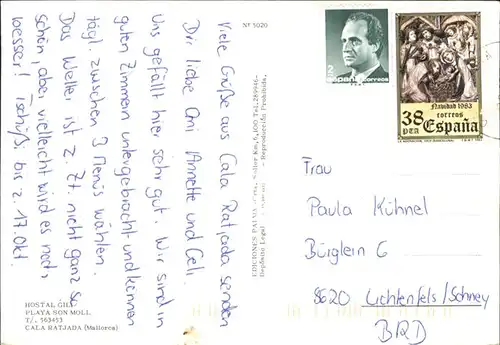 Viele Grüße aus Cala Ratjada senden
Dir liebe Omi Annette und Geli.
Uns gefällt hier sehr gut. Wir sind in
guten Zimmern untergebracht und können
tägl. zwischen 3 Menüs wählen.
Das Wetter ist z. Zt. nicht ganz so
schön, aber vielleicht wird es noch
besser! Tschüß, bis z. 17. Okt.
HOSTAL GILI
PLAYA SON MOLL
T/. 563453
CALA RATJADA (Mallorca)
Nº 5020
EDICIONES PALMA
Depósito Legal
- Reproducción Prohibida.
2
españa correos
Navidad 1983
correos
38 PTA España
Frau
Paula Kühnel
Bürglein 6
8620 Lichtenfels/Schney
BRD